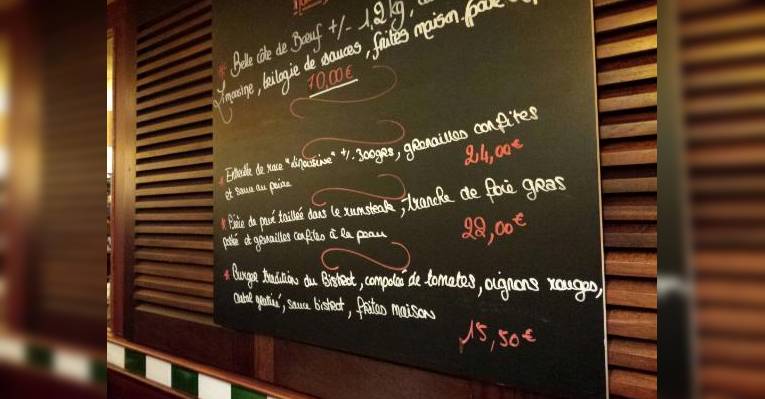 * Belle côte de Bœuf +/- 1,2 kg,
Limousine, trilogie de sauces, frites maison pour
70,00€
* Entrecôte de race "Limousine" +/- 300grs, grenailles confites
et sauce au poivre
24,00€
* Pièce de pavé taillée dans le rumsteak, tranche de foie gras
poêlé et grenailles confites à la peau
22,00€
* Burger tradition du Bistrot, compotée de tomates, oignons rouges,
cantal gratiné, sauce bistrot, frites maison
15,50€